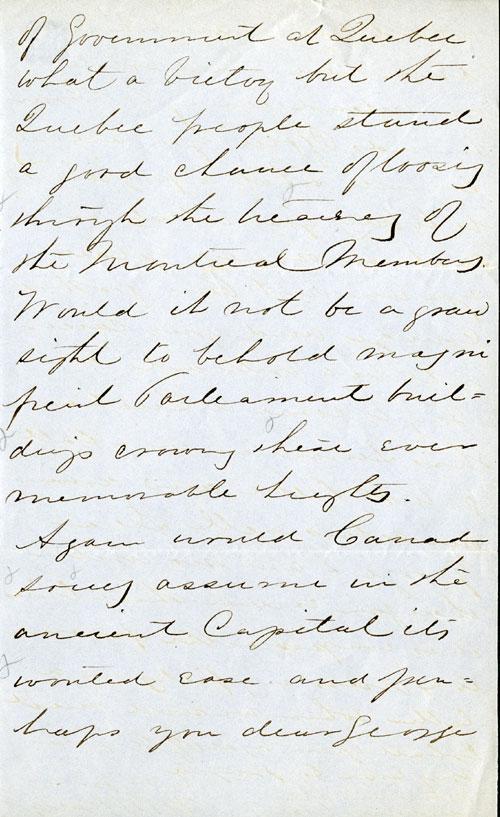 of Government at Quebec
what a victory but the
Quebec people stand
a good chance of loosing
through the treachery of
the Montreal Members.
Would it not be a grand
sight to behold magni
ficent Parliament buil=
dings crowning these ever
memorable heights.
Again would Canad
assume in the
ancient Capital its
wonted ease and per=
haps you dear George